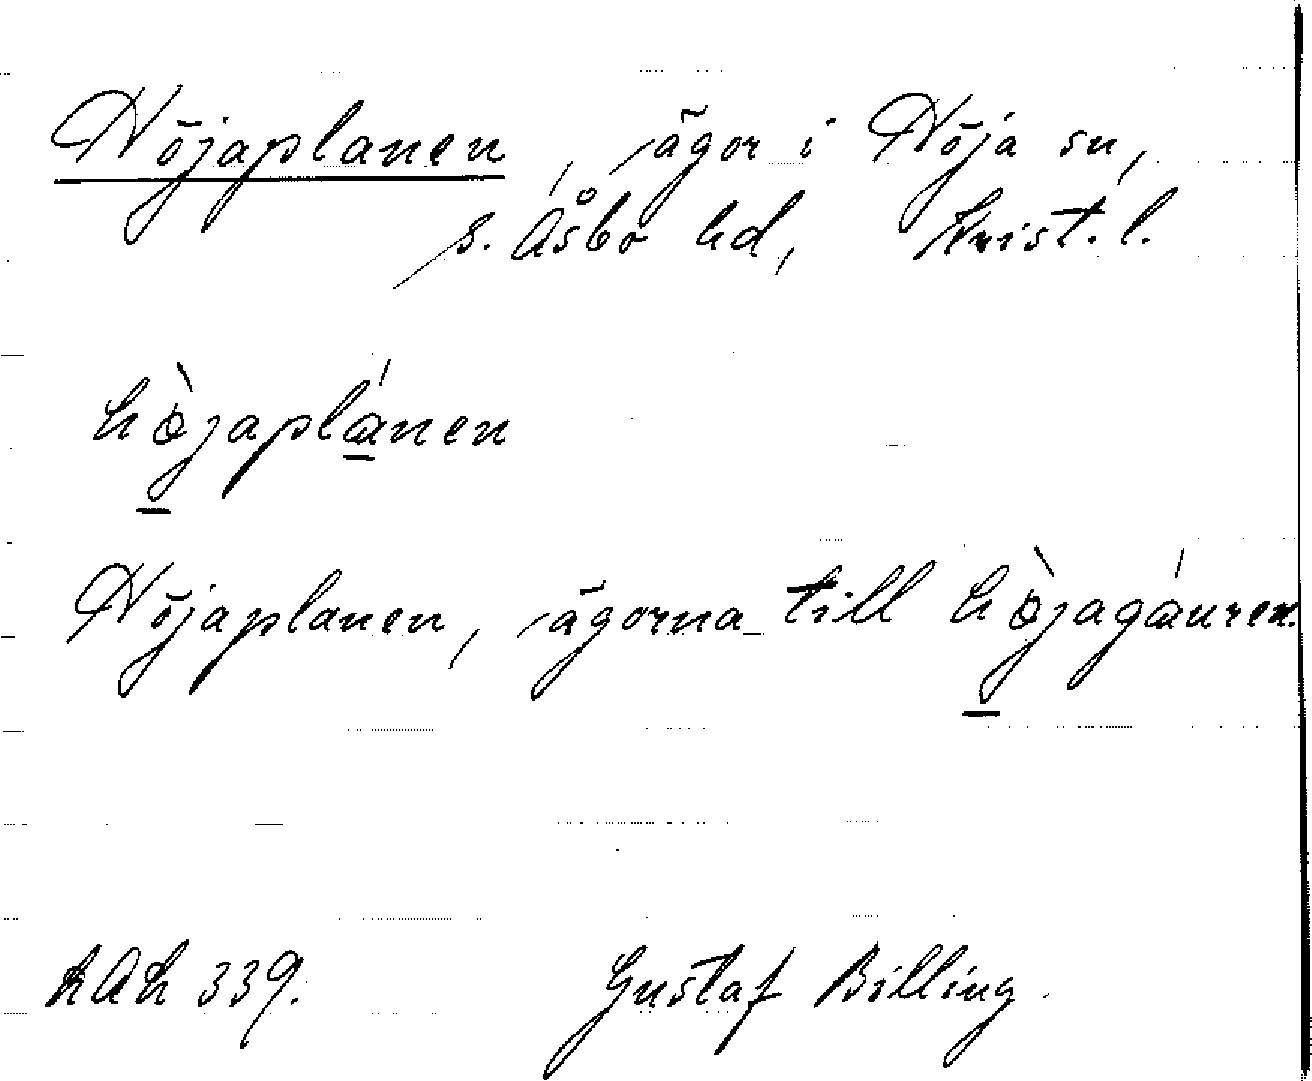 Höjaplanen, ägor i Höja sn,
S. Åsbo hd, Krist. l.
hö̀japlánen
Höjaplanen, ägorna till hö̀jagáuren.
339. Gustaf Billing.